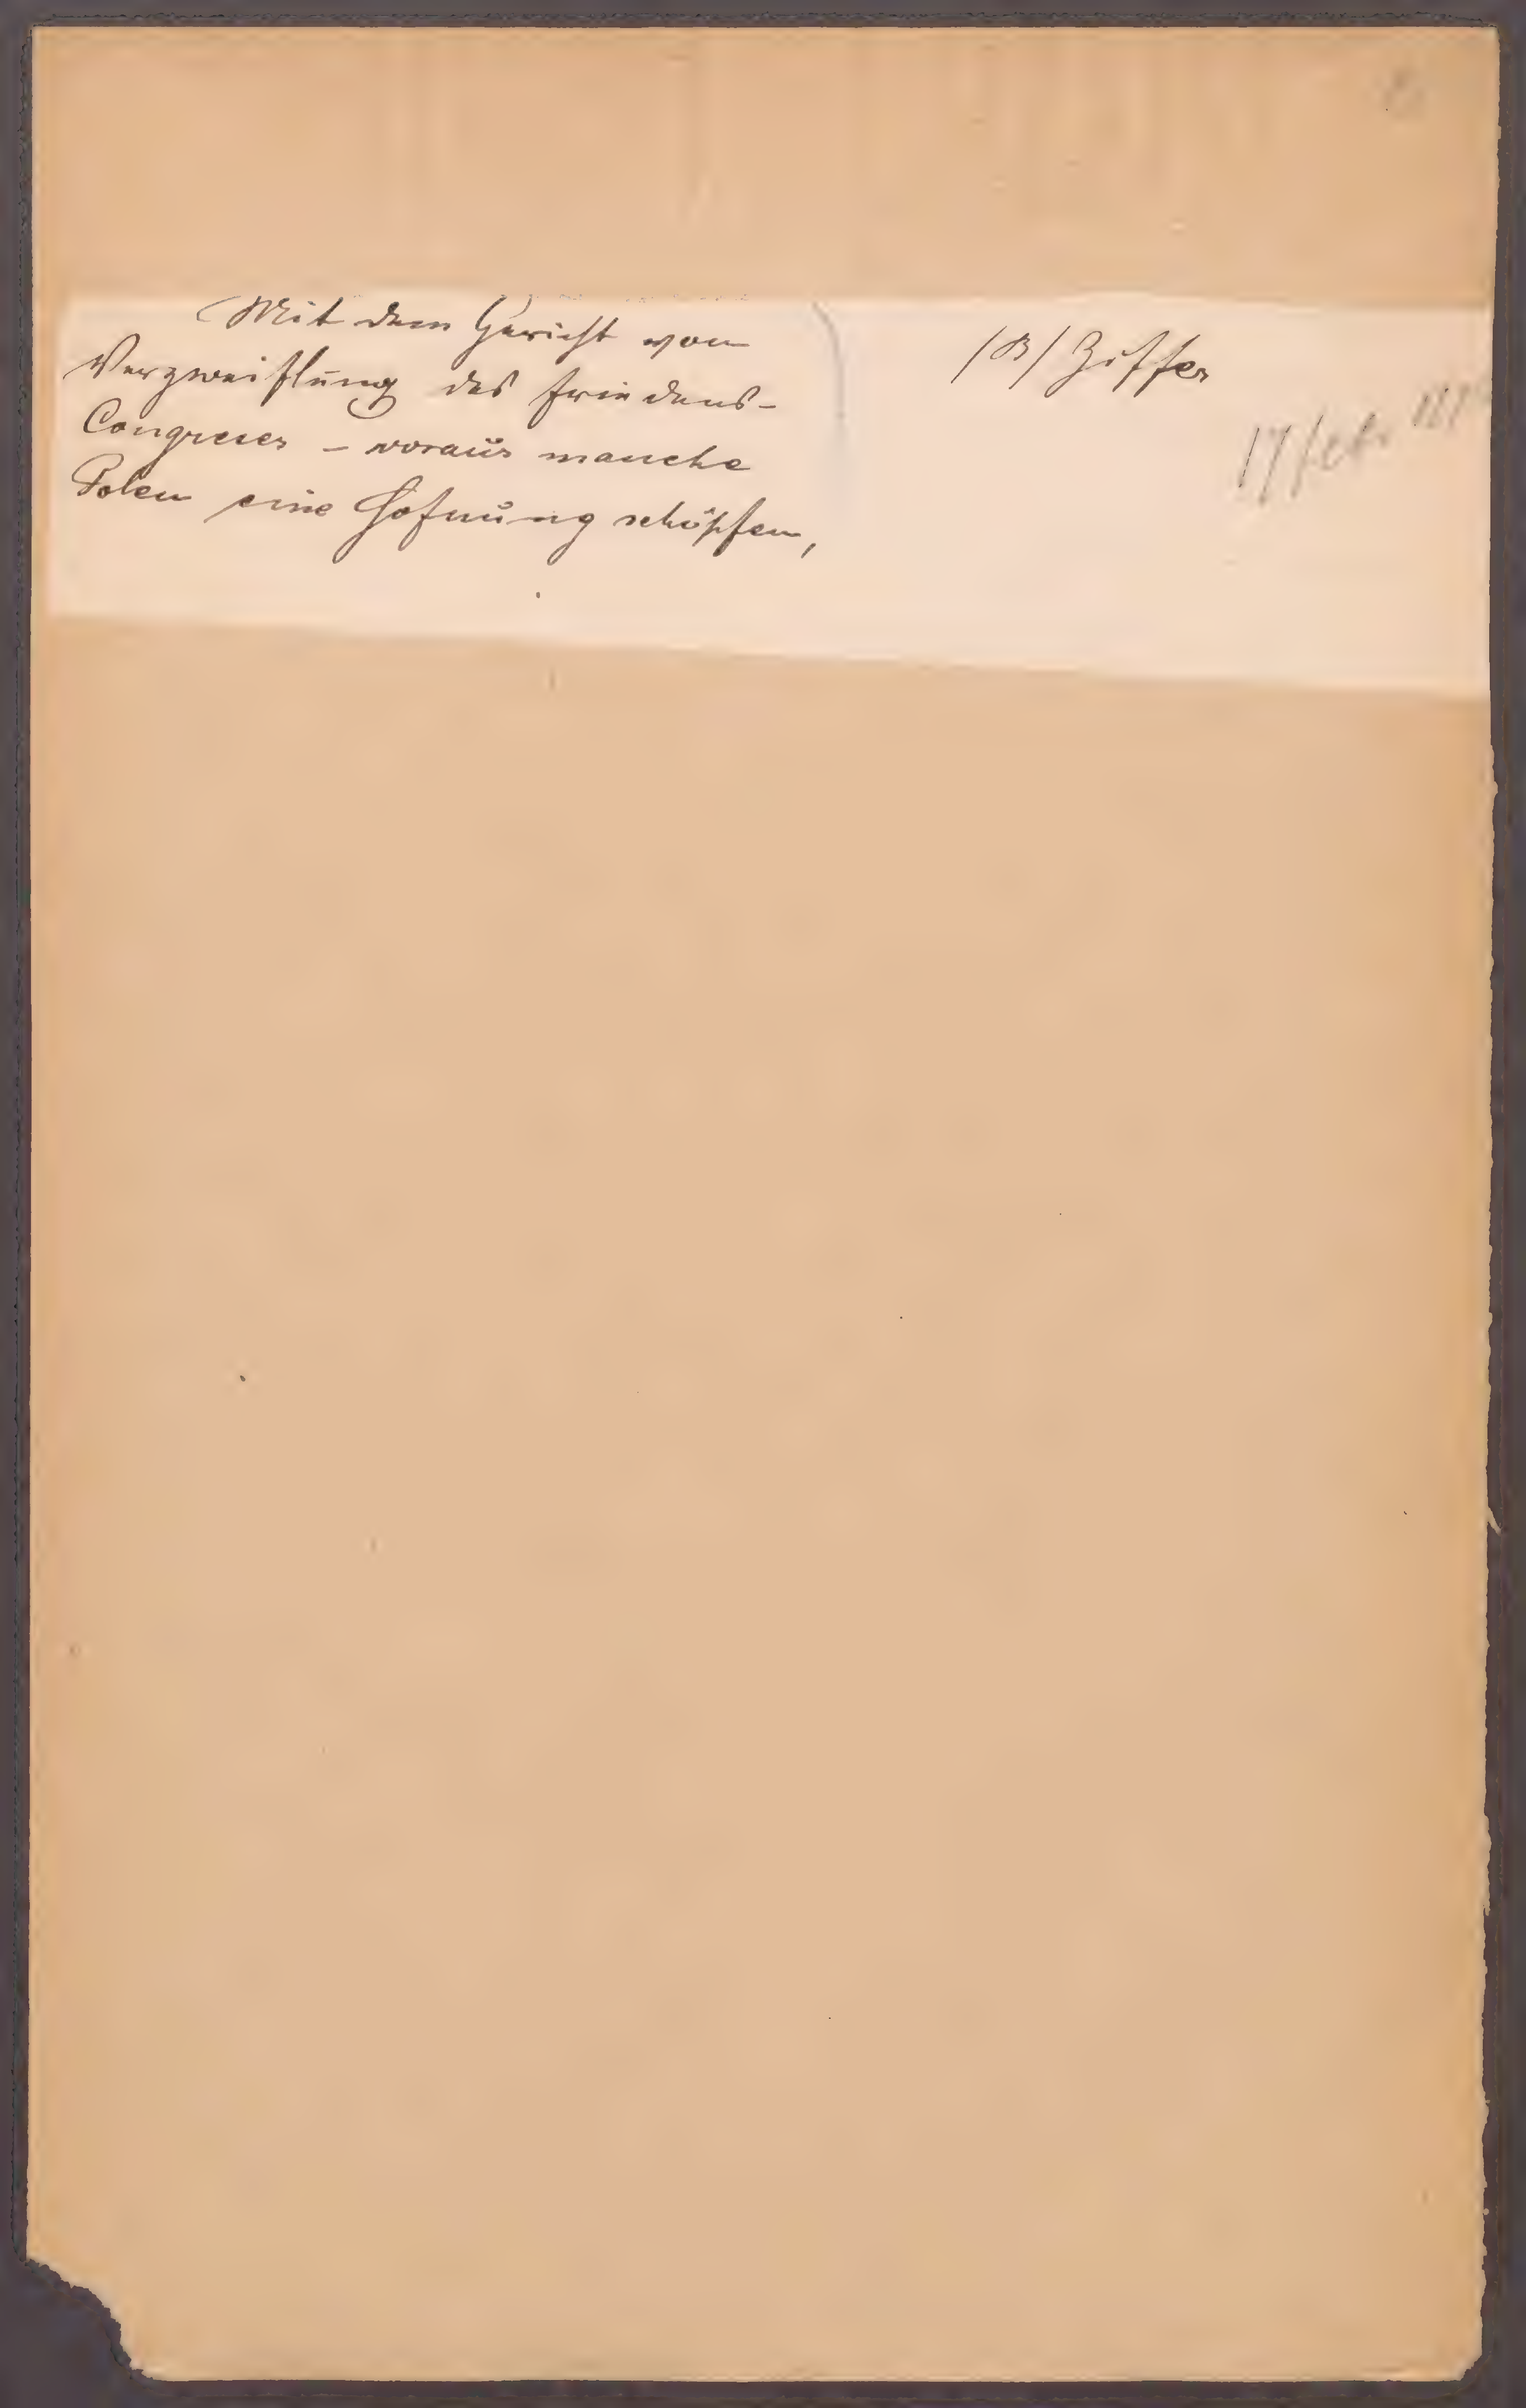 Mit dem Gericht von
Verzweiflung des Friedens-
Congreses – woraus manche
Polen eine Hofnung schöpfen,
/B/ Ziffer
17 febr